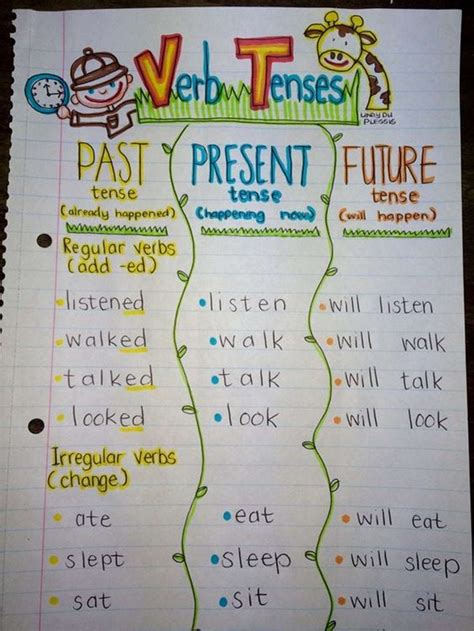 Verb Tenses
UNAY DU
PLESSIS
PAST PRESENT FUTURE
tense tense tense
(already happened) (happening now) (will happen)
Regular verbs
(add -ed)
• listened • listen • will listen
• walked • walk • will walk
• talked • talk • will talk
• looked • look • will look
Irregular verbs
(change)
• ate • eat • will eat
• slept • sleep • will sleep
• sat • sit • will sit